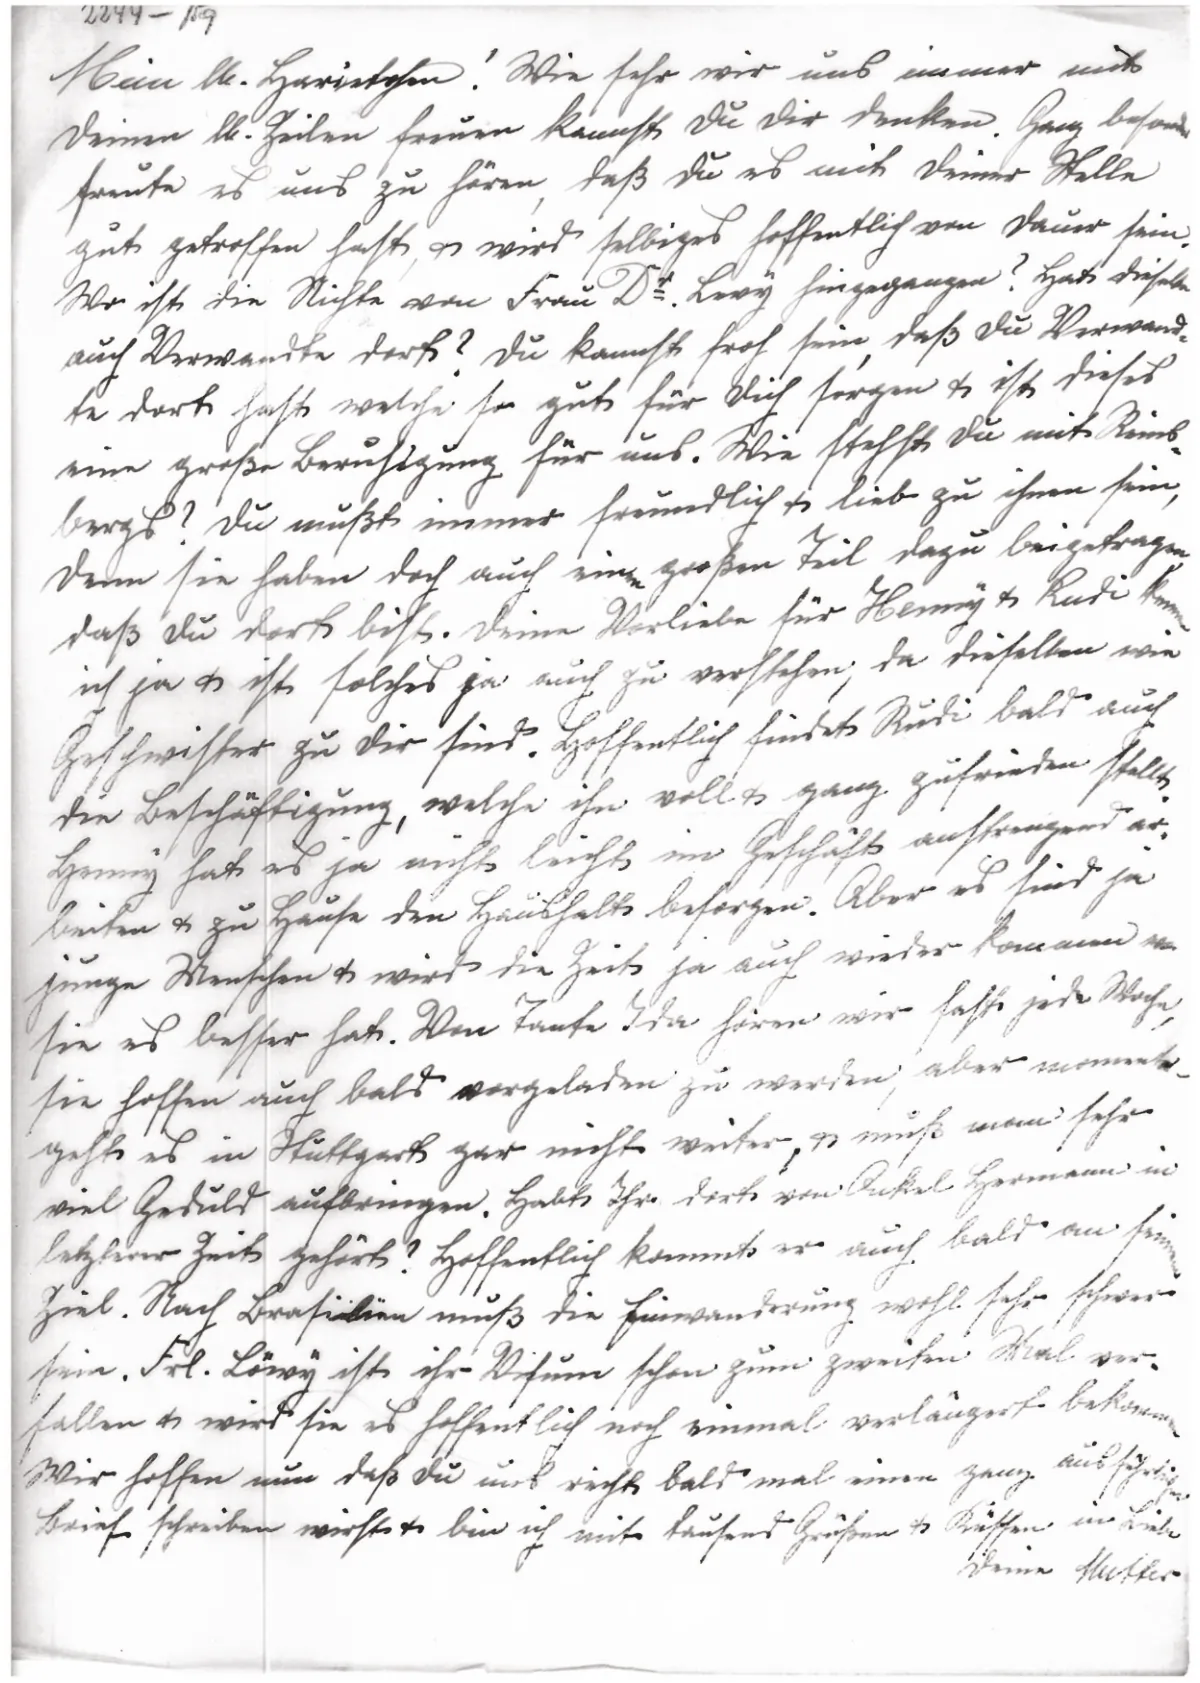 2244-159
Mein lb. Harietchen! Wie sehr wir uns immer mit
Deinen lb. Zeilen freuen kannst Du Dir denken. Ganz
freute es uns zu hören, daß Du es mit Deiner Stelle
gut getroffen hast, & wird selbiges hoffentlich von Dauer sein.
Wo ist die Nichte von Frau Dr. Levy hingegangen? Hat dieselbe
auch Verwandte dort? Du kannst froh sein, daß Du Verwand-
te dort hast welche so gut für Dich sorgen & ist dieses
eine große Beruhigung für uns. Wie stehst Du mit Reins-
bergs? Du mußt immer freundlich & lieb zu ihnen sein,
denn sie haben doch auch einen großen Teil dazu beigetragen
daß Du dort bist. Deine Vorliebe für Henny & Rudi
ich ja & ist solches ja auch zu verstehen, da dieselben wie
Geschwister zu Dir sind. Hoffentlich findet Rudi bald auch
die Beschäftigung, welche ihn voll & ganz zufrieden stellt.
Henny hat es ja nicht leicht im Geschäft anstrengend ar-
beiten & zu Hause den Haushalt besorgen. Aber es sind ja
junge Menschen & wird die Zeit ja auch wieder kommen wo
sie es besser hat. Von Tante Ida hören wir fast jede Woche,
sie hoffen auch bald vorgeladen zu werden, aber momentan
geht es in Stuttgart gar nicht weiter, & muß man sehr
viel Geduld aufbringen. Habt Ihr dort von Onkel Hermann in
letzterer Zeit gehört? Hoffentlich kommt er auch bald an sein
Ziel. Nach Brasilien muß die Einwanderung wohl sehr schwer
sein. Frl. Löwy ist ihr Visum schon zum zweiten Mal ver-
fallen & wird sie es hoffentlich noch einmal verlängert bekommen
Wir hoffen nun daß Du uns recht bald mal einen ganz ausführlichen
Brief schreiben wirst & bin ich mit tausend Grüßen & Küssen in Liebe
Deine Mutter